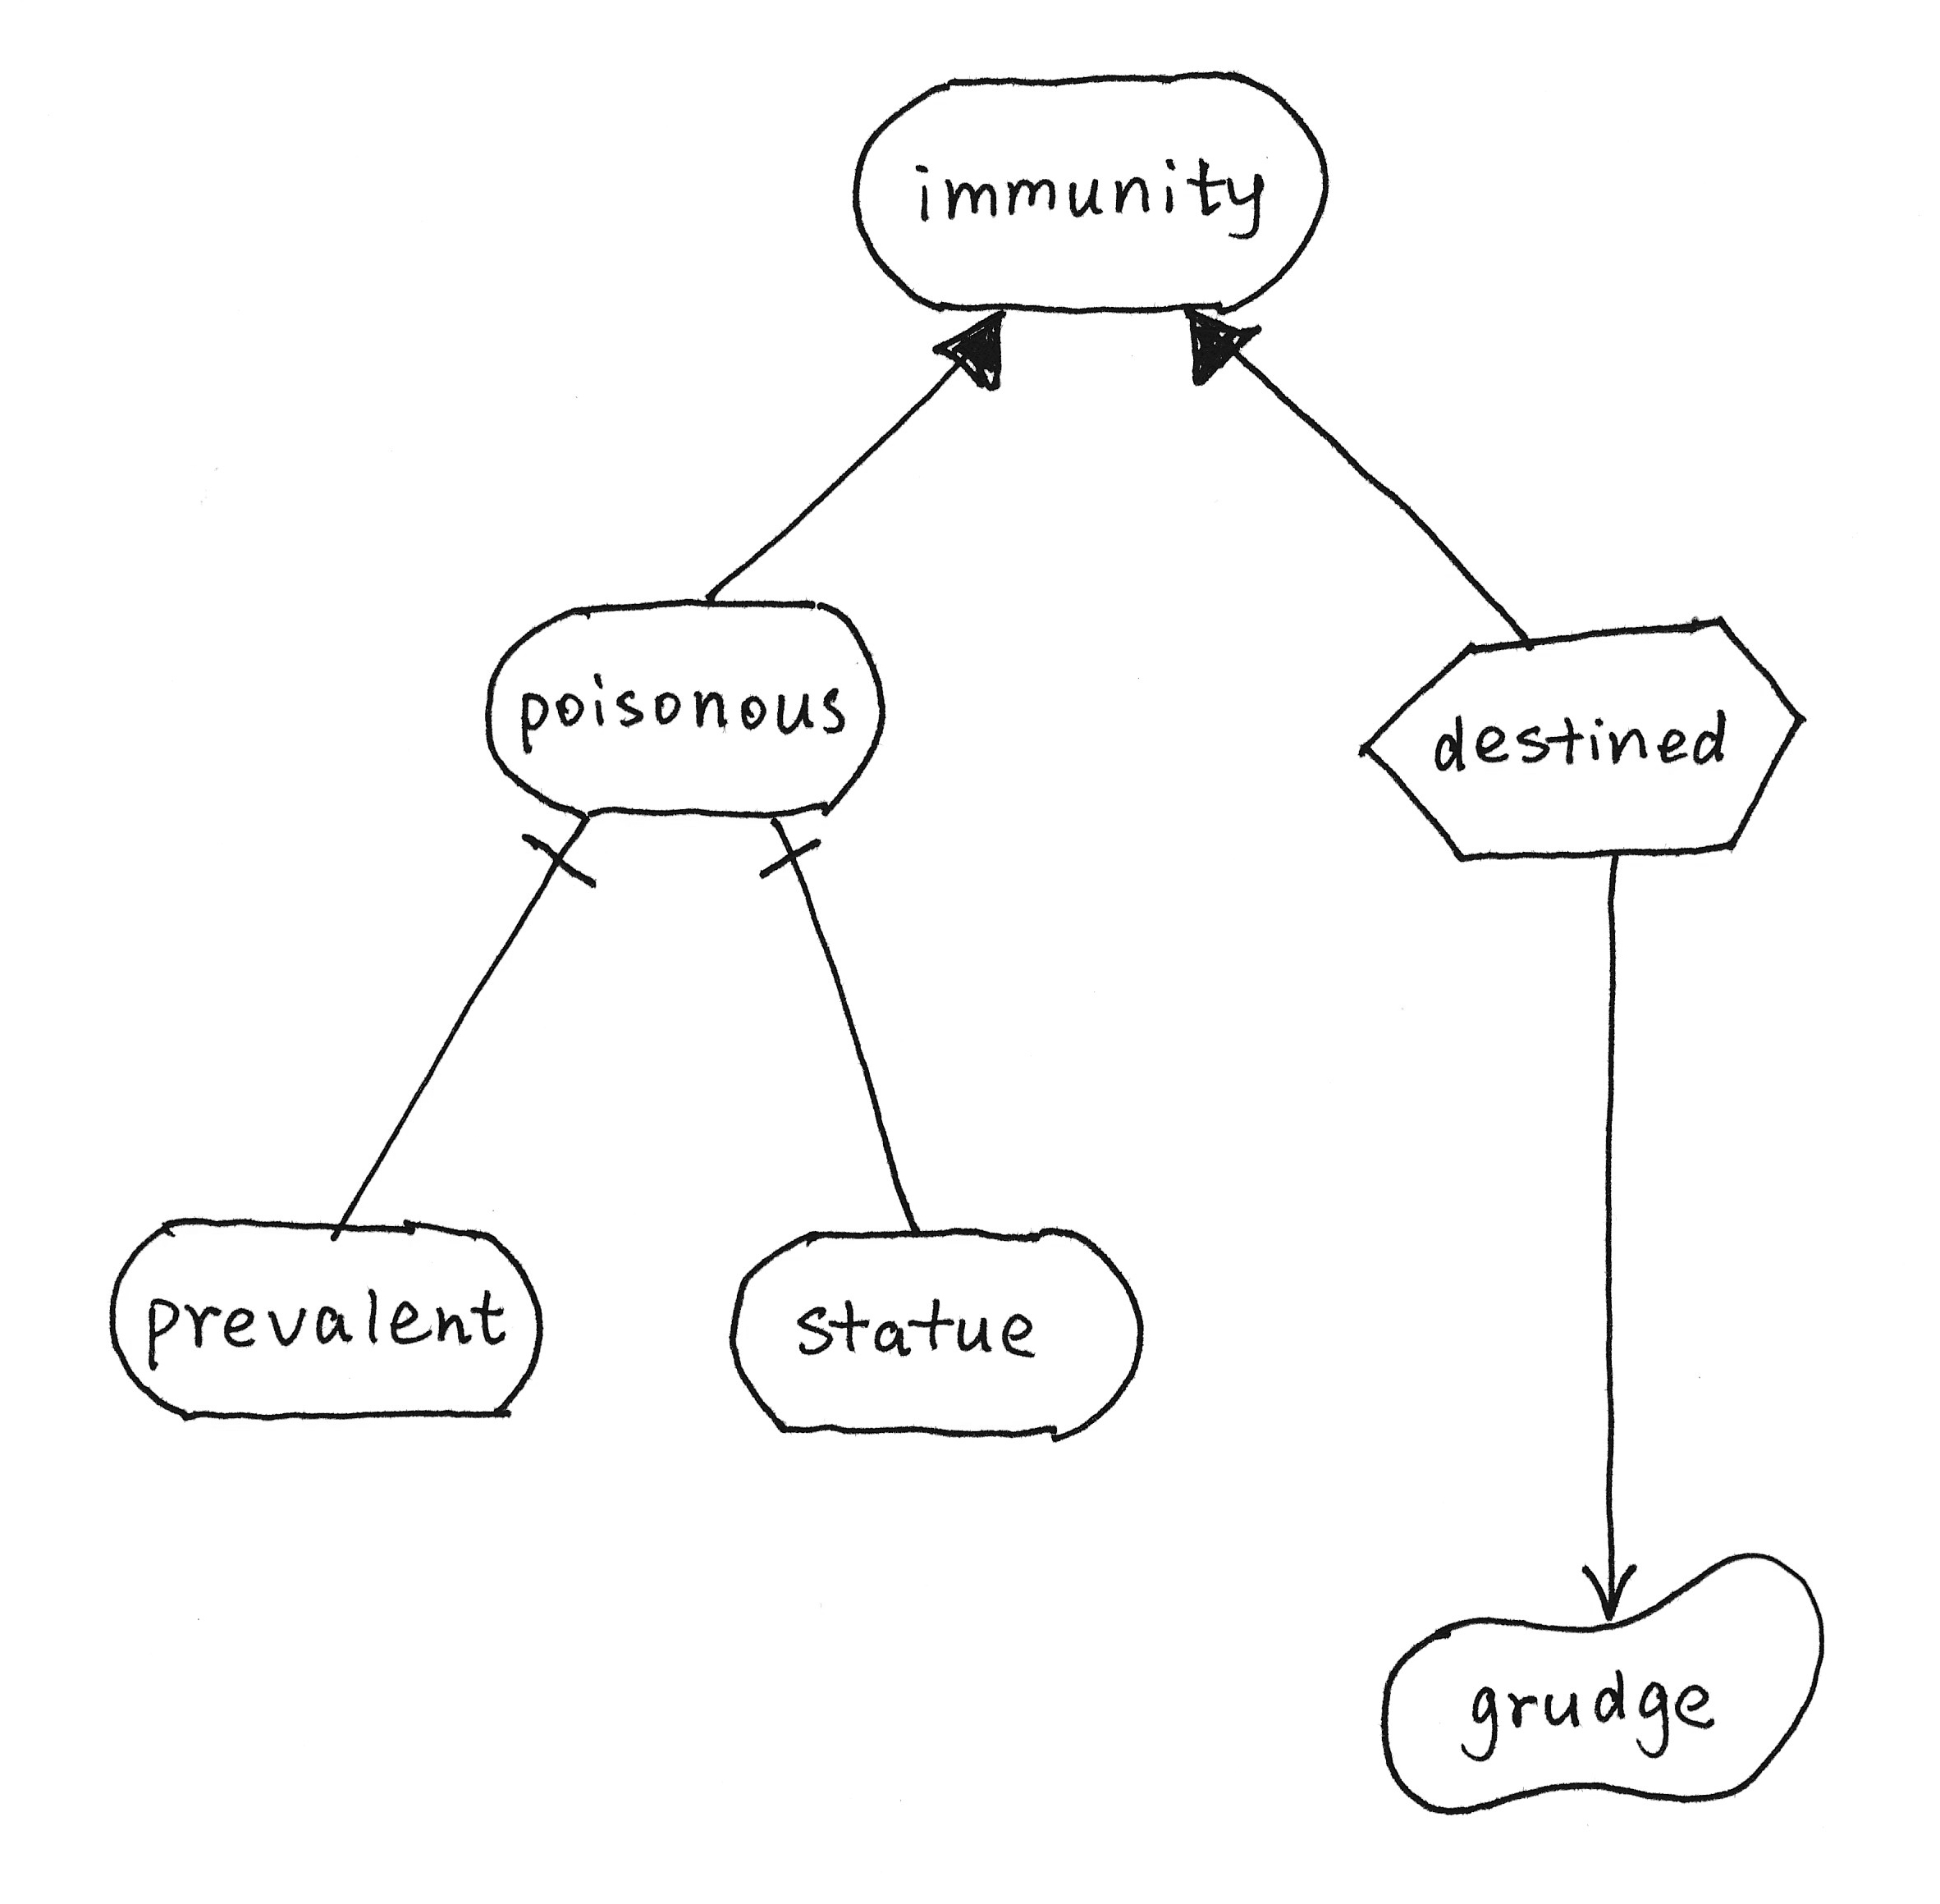 immunity
poisonous
destined
prevalent
statue
grudge